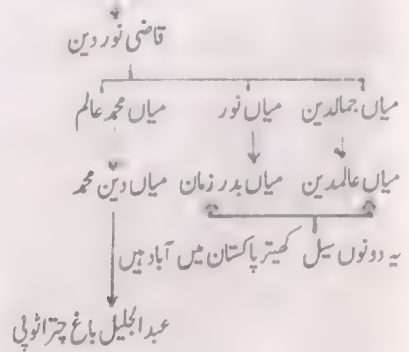 قاضی نور دین
میاں جمالدین میاں نور میاں محمد عالم
میاں عالمدین میاں بدر زمان میاں دین محمد
یہ دونوں سیل کھیتر پاکستان میں آباد ہیں
عبدالجلیل باغ چترا ٹوپی